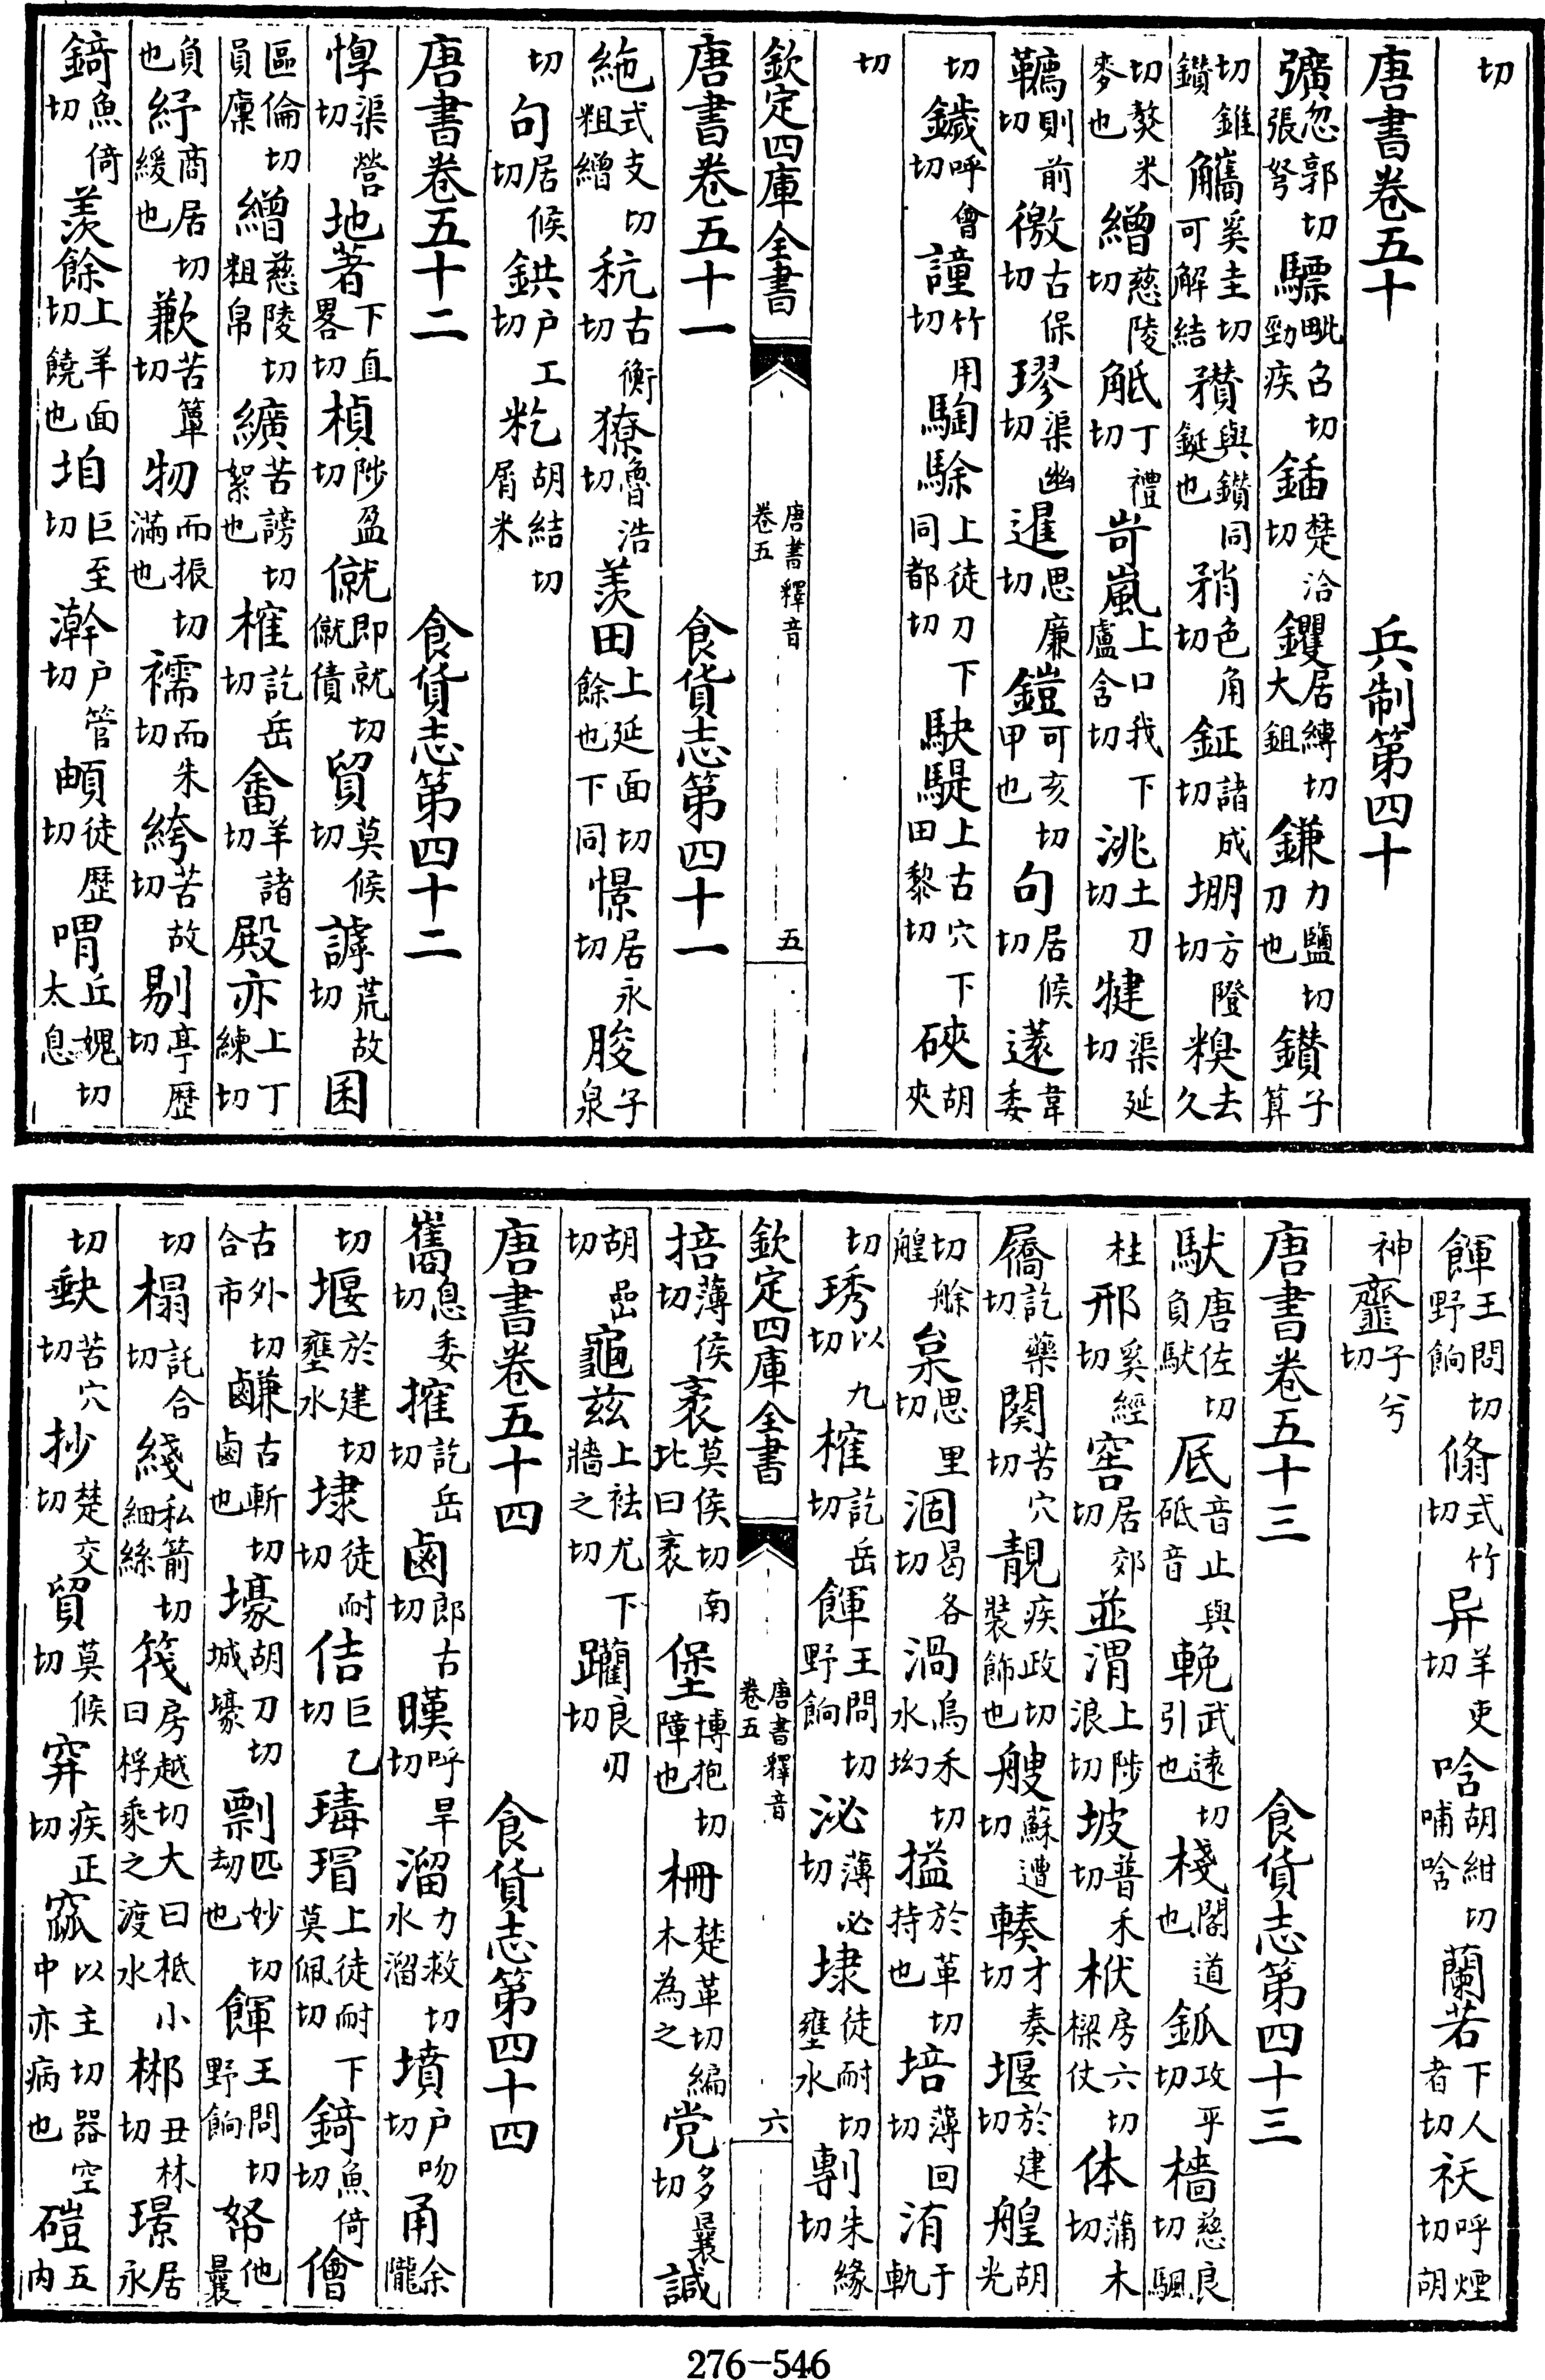 切
唐書卷五十　兵制第四十
彍忽郭切張弩驃毗召切勁疾鍤楚洽切钁居縳切大鉏鎌力鹽切刀也鑽子算
切錐鑽觿奚圭切可解結穳與鑽同鋋也矟色角切鉦諸成切堋方隥切糗去久
切熬米麥也繒慈陵切觝丁禮切岢嵐上口我下盧含切洮土刀切犍渠延切
韉則前切徼古保切璆渠幽切暹思廉切鎧可亥切甲也句居候切薳韋委
切鐬呼會切諥竹用切騊駼上徒刀下同都切駃騠上古穴下田黎切硤胡夾
切
欽定四庫全書　唐書釋音卷五　五
唐書卷五十一　食貨志第四十一
絁式支切粗繒秔古衡切獠魯浩切羨田上延面切餘也下同憬居永切朘子泉
切句居候切鉷户工切籺胡結切屑米
唐書卷五十二　食貨志第四十二
惸渠營切地著下直畧切楨陟盈切僦即就切僦債貿莫候切謼荒故切囷
區倫切員廩繒慈陵切粗帛纊苦謗切絮也榷訖岳切畬羊諸切殿亦上丁練切
負也紓商居切緩也歉苦簞切牣而振切滿也襦而朱切絝苦故切剔亭歷切
錡魚倚切羨餘上羊面切饒也垍巨至切澣户管切頔徒歷切喟丘媿切太息
餫王問切野餉翛式竹切异羊吏切唅胡紺切哺唅蘭若下人者切祆呼煙切胡
神齏子兮切
唐書卷五十三　食貨志第四十三
馱唐佐切負馱厎音止與砥音輓武遠切引也棧閣道也鈲攻乎切檣慈良切颿
柱邢奚經切窖居郊切並渭上陟浪切坡普禾切栿房六切樑仗体蒲木切
屩訖藥切闋苦穴切靚疾政切裝飾也艘蘇遭切輳才奏切堰於建切艎胡光
切艅艎枲思里切涸曷各切渦烏禾切水坳搤於革切持也培薄回切洧于軌
切琇以九切榷訖岳切餫王問切野餉泌薄必切埭徒耐切壅水剸朱緣切
欽定四庫全書　唐書釋音卷五　六
掊薄侯切袤莫侯切南北曰袤堡博抱切障也柵楚革切編木為之党多曩切諴
胡嵒切龜兹上袪尤下牆之切躪良刃切
唐書卷五十四　食貨志第四十四
嶲息委切搉訖岳切鹵郎古切暵呼旱切溜力救切水溜墳户吻切甬余隴
切堰於建切壅水埭徒耐切佶巨乙切瑇瑁上徒耐下莫佩切錡魚倚切儈
古外切合市鹻古斬切鹵也壕胡刀切城壕剽匹妙切劫也餫王問切野餉帑他曩
切榻託合切綫私箭切細絲筏房越切大曰柢小曰桴乘之渡水郴丑林切璟居永
切缺苦穴切抄楚交切貿莫候切穽疾正切窳以主切器空中亦病也磑五内
276-546